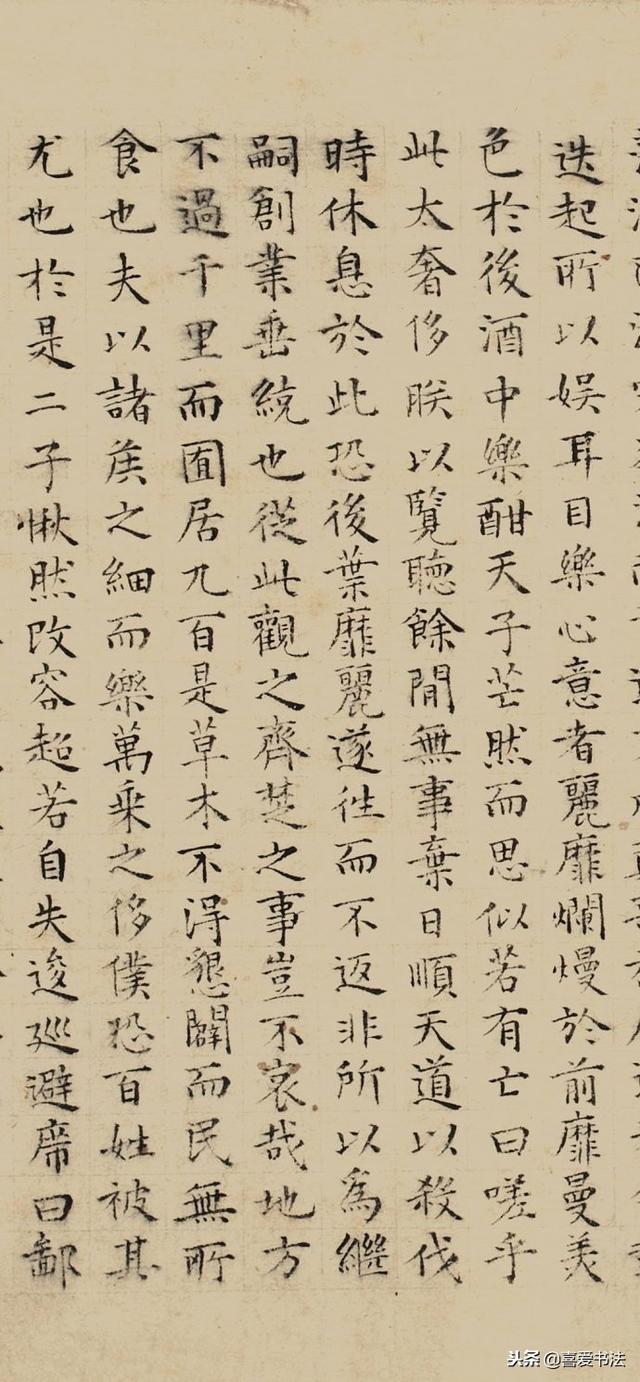 迭起所以娱耳目樂心意者麗靡爛熳於前靡曼美
色於後酒中樂酣天子芒然而思似若有亡曰嗟乎
此太奢侈朕以覽聽餘閒無事棄日順天道以殺伐
時休息於此恐後葉靡麗遂往而不返非所以爲繼
嗣創業垂統也從此觀之齊楚之事豈不哀哉地方
不過千里而囿居九百是草木不得墾闢而民無所
食也夫以諸侯之細而樂萬乘之侈僕恐百姓被其
尤也於是二子愀然改容超若自失逡巡避席曰鄙
头条 @喜爱书法